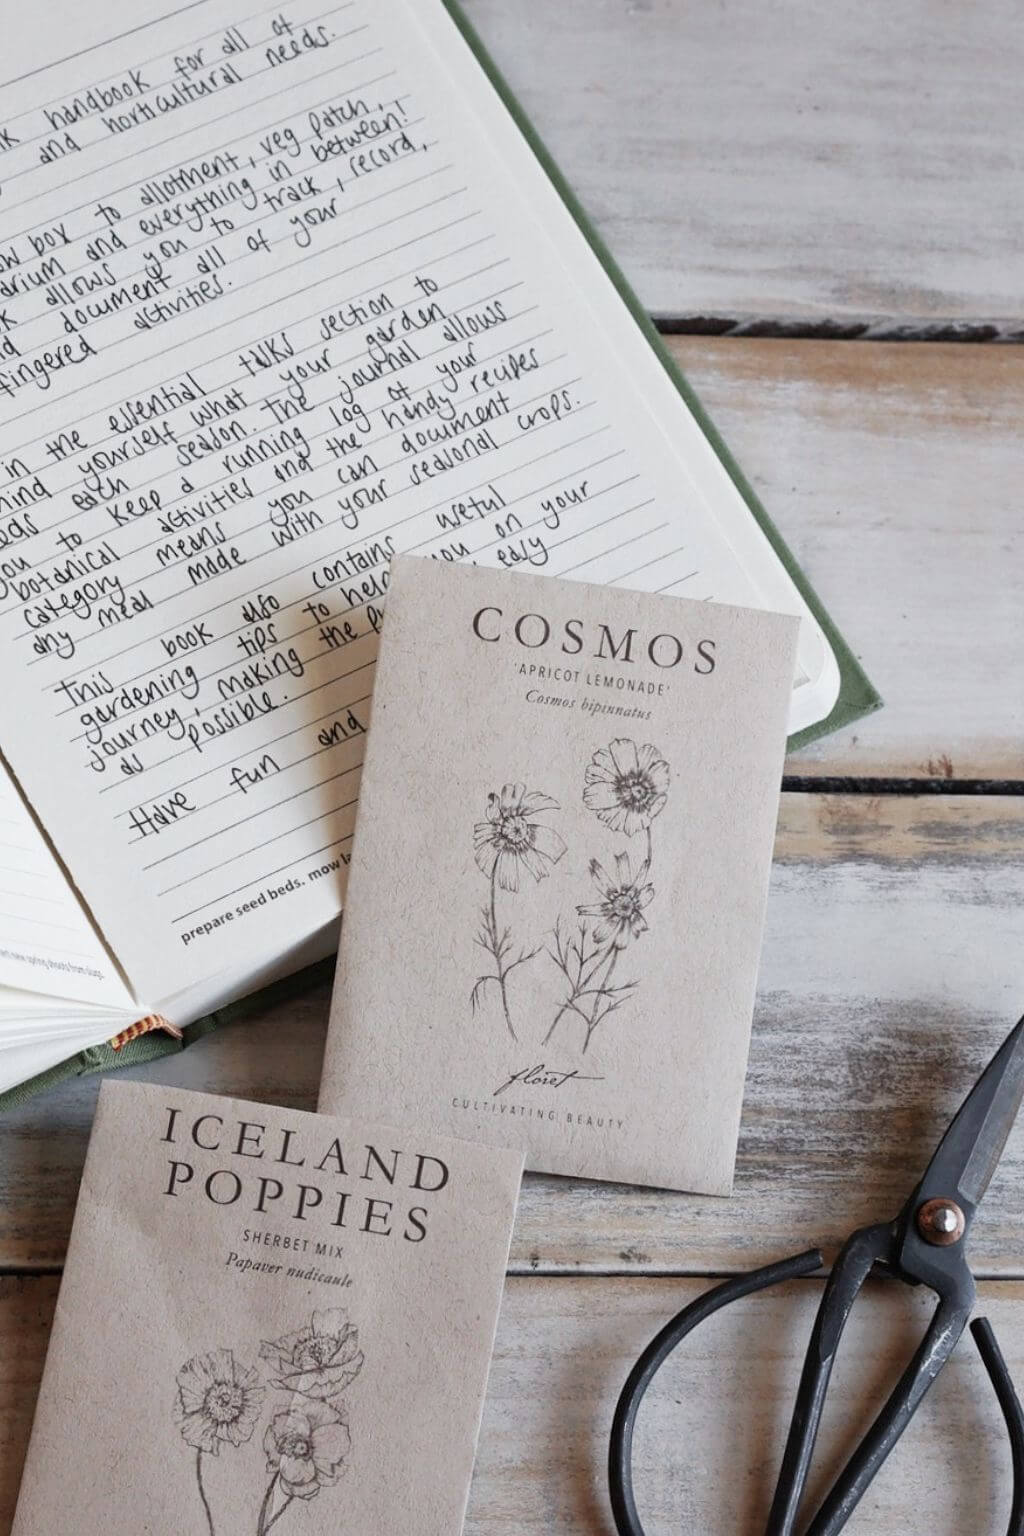 handbook for all of
and horticultural needs.
box to allotment, veg patch,
and everything in between!
allows you to track, record,
document all of your
fingered activities.
in the essential talks section to
yourself what your garden
each season. The journal allows
you to keep a running log of your
botanical activities and the handy recipes
category means you can document
any meal made with your seasonal crops.
This book also contains useful
gardening tips to help you on your
journey, making the easy
as possible.
Have fun and
prepare seed beds. mow
COSMOS
'APRICOT LEMONADE'
Cosmos bipinnatus
floret
CULTIVATING BEAUTY
ICELAND
POPPIES
SHERBET MIX
Papaver nudicaule